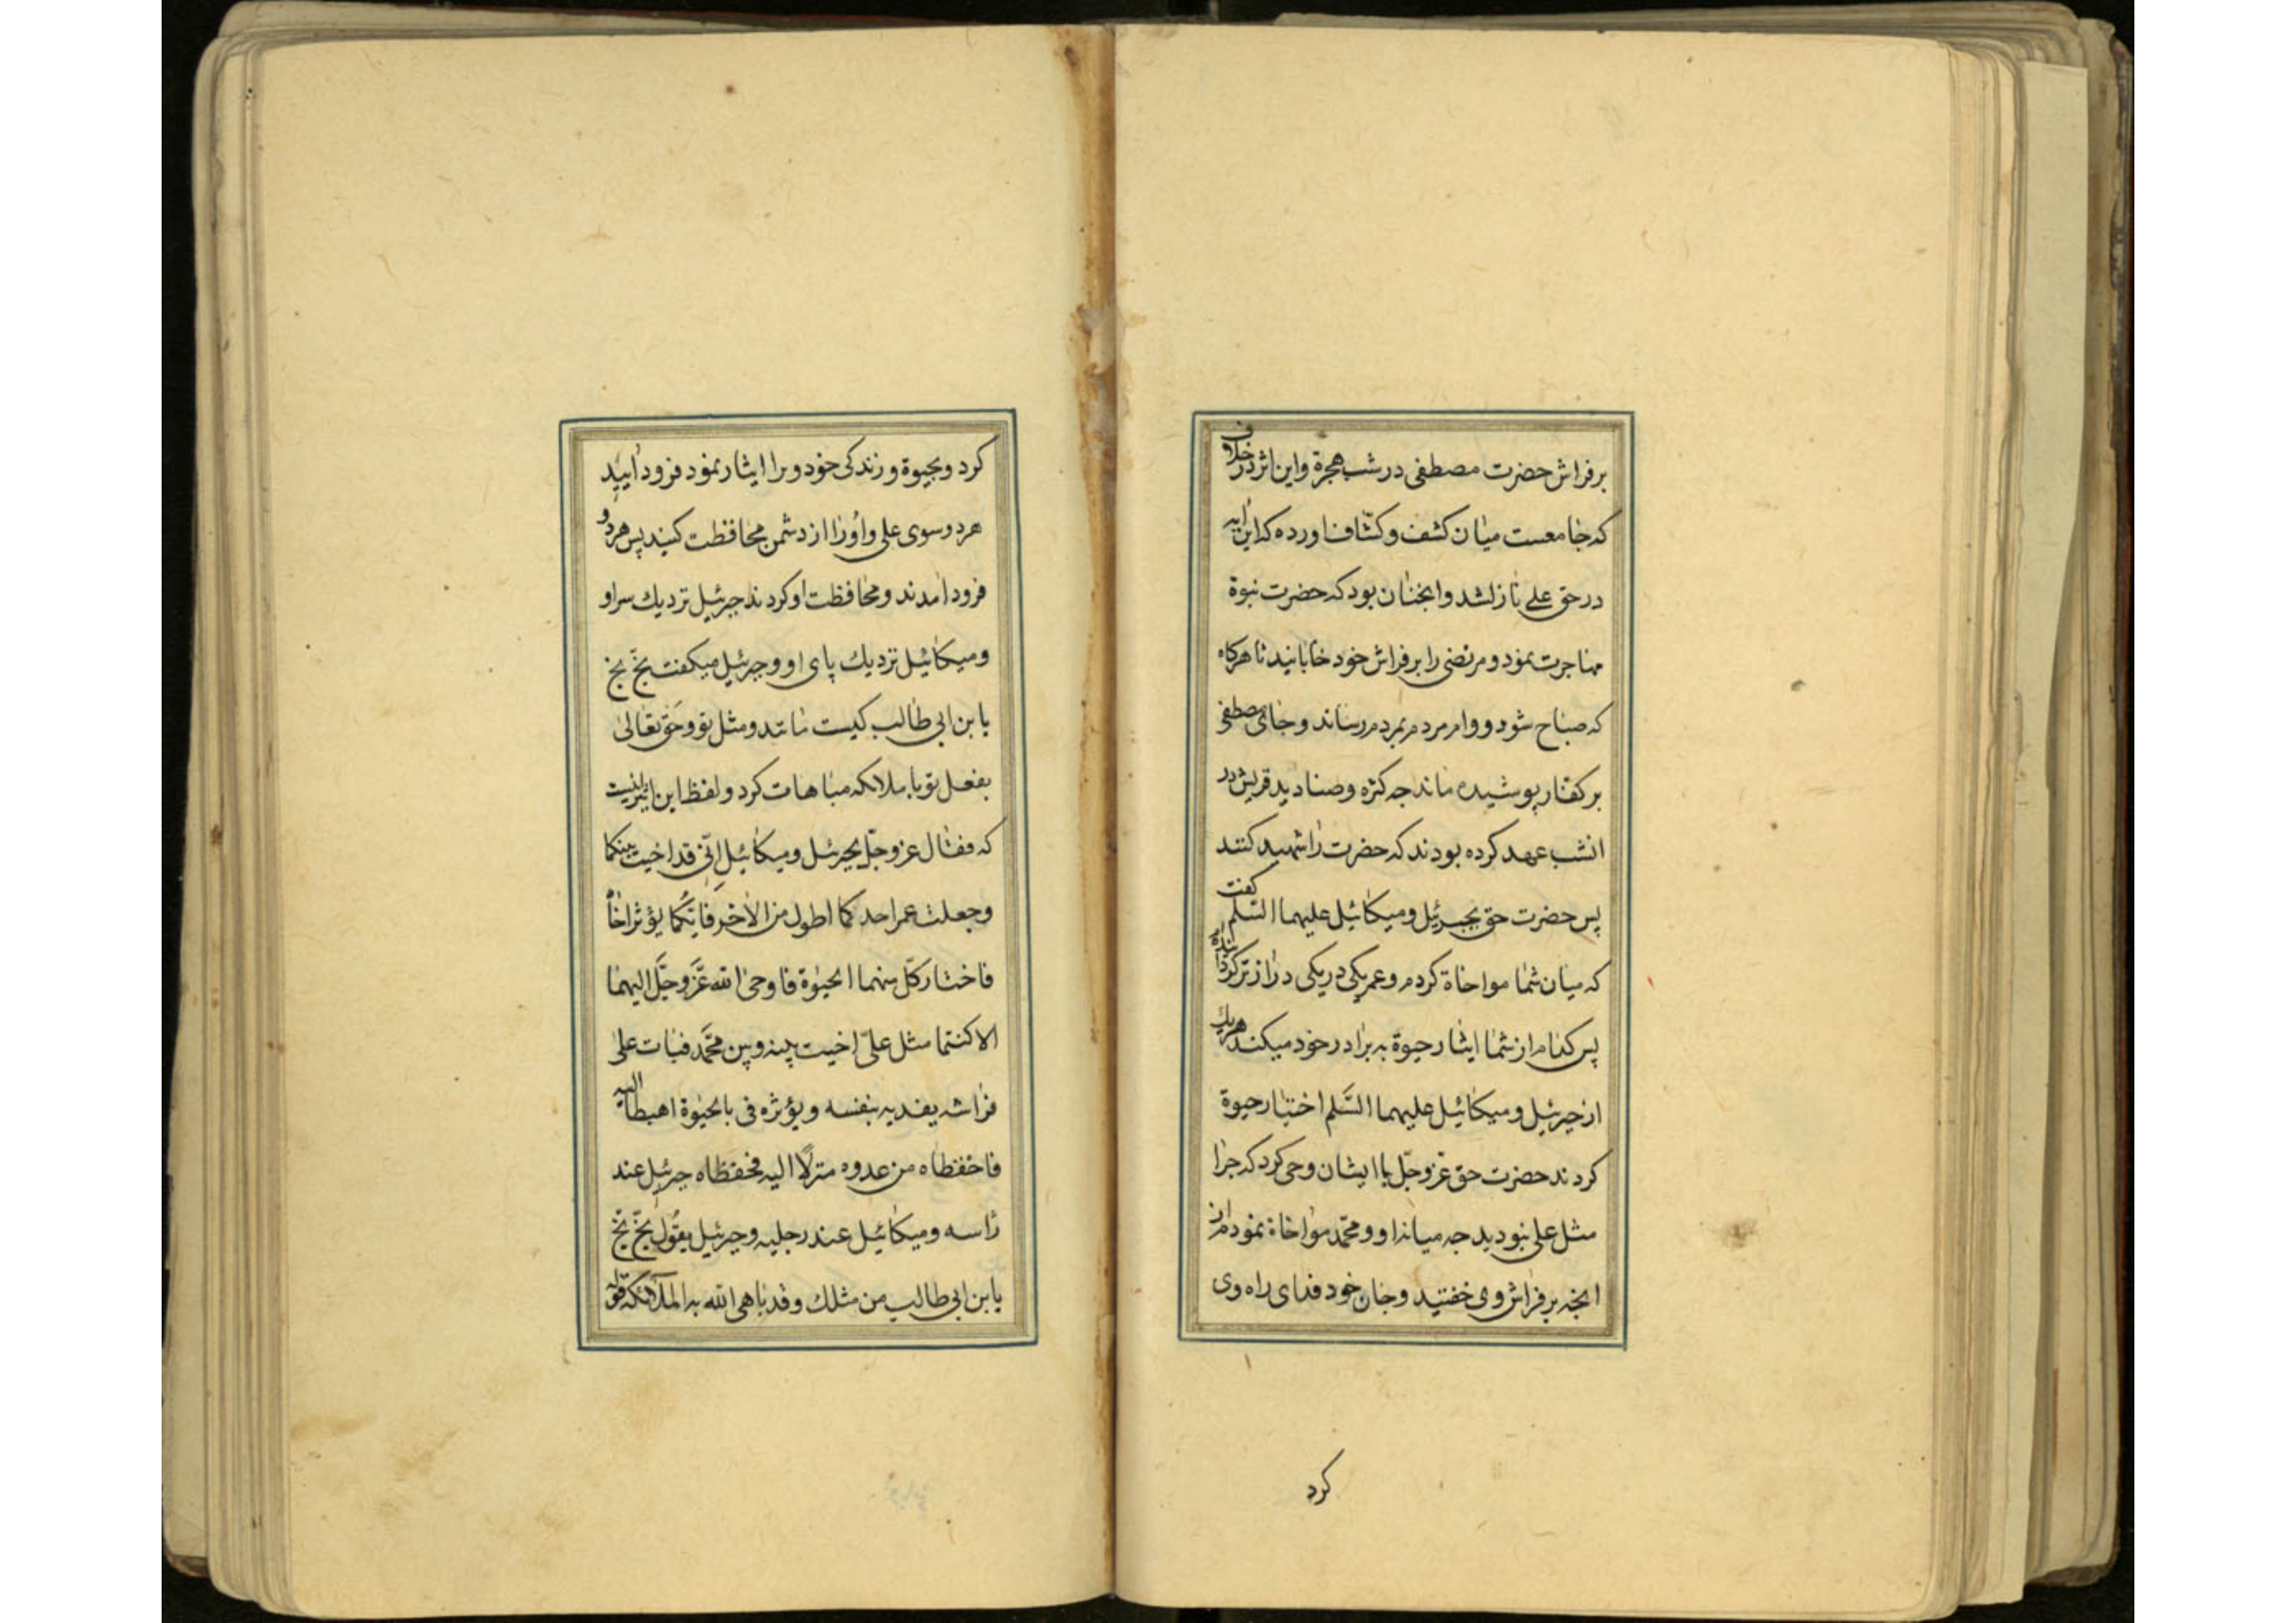 برفراش حضرت مصطفی در شب هجرة و این اثر در خلاف
که جامعست میان کشف و کشاف اورده که این ایه
در حق علی نازل شد و انجنان بود که حضرت نبوة
مهاجرت نمود و مرتضی را بر فراش خود خابانید تا هرکاه
که صباح شود و وام مردم بمردم رساند و جای مصطفی
بر کفار پوشیده ماند جه کثره وصنادید قریش در
انشب عهد کرده بودند که حضرت را شهید کنند
پس حضرت حق بجبرئیل و میکائیل علیهما السّلم کفت
که میان شما مواخاة کردم و عمر یکی در یکی دراز تر کردانیده
پس کدام از شما ایثار حیوة به برادر خود میکند هریك
از جبرئیل و میکائیل علیهما السَّلم اختیار حیوة
کردند حضرت حق عزّ وجلّ باایشان وحی کرد که جرا
مثل علی نبودید جه میانه او و محمّد مواخاة نمودم از
انجه بر فراش وی خفتید و جان خود فدای راه وی
کرد
کرد و بحیوة و زندکی خود ویرا ایثار نمود فرود آیید
هردو سوی علی و اورا از دشمن محافظت کنید پس هردو
فرود امدند و محافظت او کردند جبرئیل نزدیك سر او
و میکائیل نزدیك پای او و جبرئیل میکفت بخّ بخ
یا بن ابی طالب کیست مانند و مثل تو و حَق تعالیٰ
بفعل تو با ملائکه مباهات کرد و لفظ این اثر اینست
که فقال عز وجلّ بجبرئیل و میکائیل انّی قد اخیت بینکما
وجعلت عمر احدکما اطول من الاخر فایّکما یؤثر اخاهُ
فاختار کلّ منهما الحیٰوة فاوحیٰ الله عَزَّ وجَلَّ الیهما
الا کنتما مثل علیّ اخیت بینه وبین محَمَّد فبات علیٰ
فراشه یفدیه بنفسه ویؤثره فی بالحیٰوة اهبطا الیه
فاحفظاه من عدوه منزلًا الیه فحفظاه جبرئیل عند
راسه ومیکائیل عند رجلیه وجبرئیل یقول بخّ بخّ
یا بن ابی طالب من مثلك وقد باهی الله به الملآئکه قوله